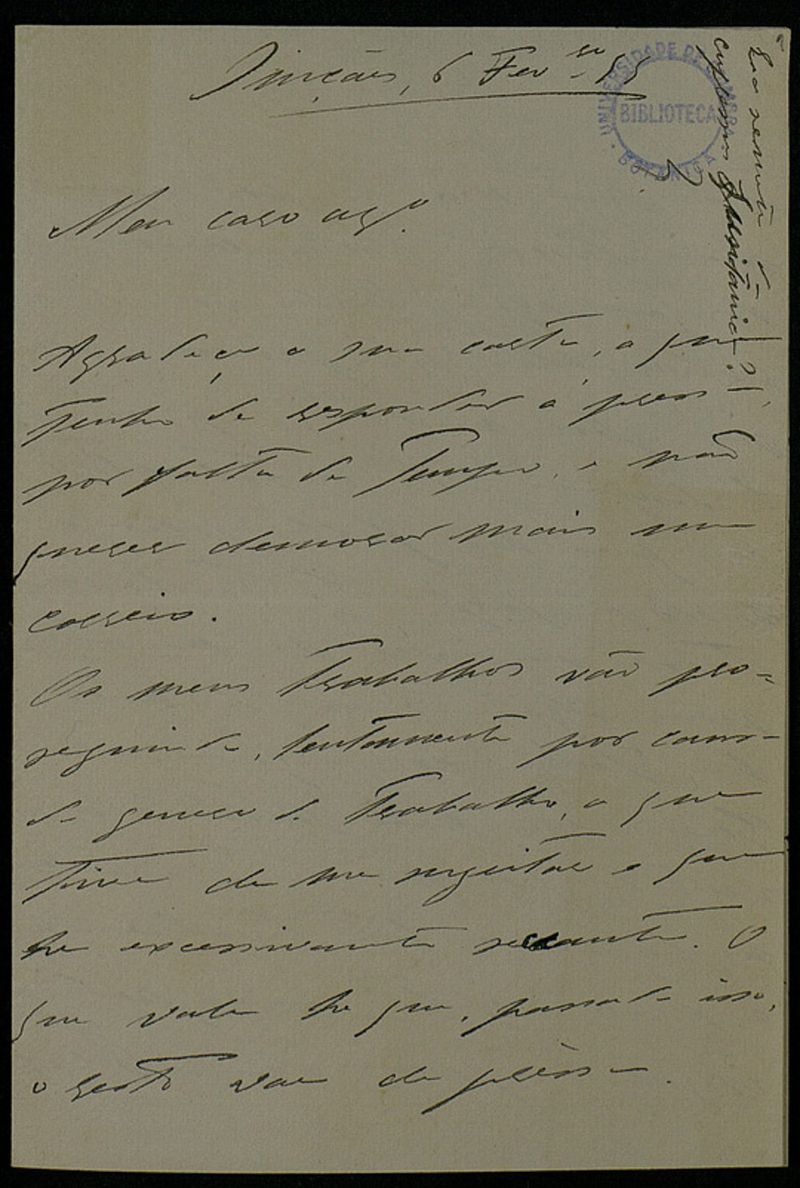 6 Fev.
Meu caro am.º
Agradeço a sua carta, a que
tenho de responder á pressa,
por falta de tempo, e não
querer demorar mais um
correio.
Os meus trabalhos vão pro-
seguindo, lentamente por causa
do genero de trabalho, a que
tive de me sugeitar e que
he excessivamente seccante. O
que vale he que, passado isso,
o resto vae de pressa.
UNIVERSIDADE DE COIMBRA
BIBLIOTECA
BOTANICA
Lusitanica?